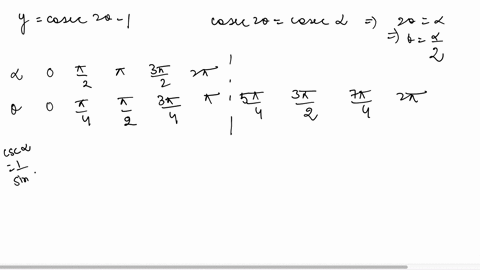 y = cosec 2θ - 1
cosec 2θ = cosec α => 2θ = α
=> θ = α/2
α 0 π/2 π 3π/2 2π
θ 0 π/4 π/2 3π/4 π 5π/4 3π/2 7π/4 2π
csc α
= 1/sin